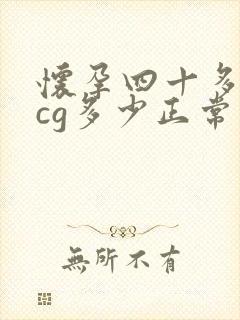 懷孕四十多
cg多少正常
無所不有